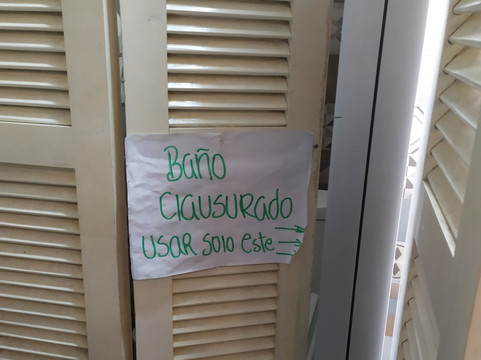 Baño
Clausurado
USAR solo este